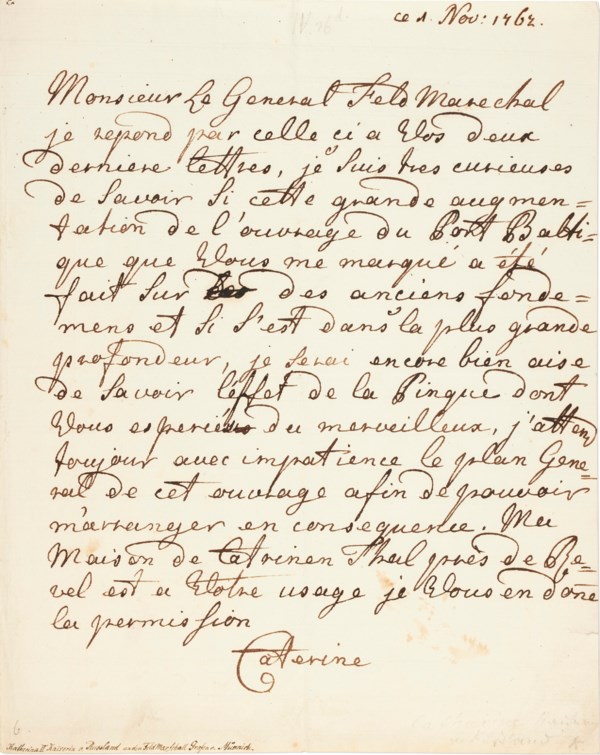 ce 1. Nov: 1762.
Monsieur Le General Feld Marechal
je repond par celle ci a Vos deux
derniere lettres, je suis tres curieuses
de savoir si cette grande augmen=
tation de l'ouvrage du Port Balti=
que que Vous me marqué a été
fait sur des anciens fonde=
mens et si s'est dans la plus grande
profondeur, je serai encore bien aise
de savoir l'effet de la Pinque dont
Vous esperies du merveilleux, j'attend
toujour avec impatience le plan Gene=
ral de cet ouvrage afin de pouvoir
m'arranger en consequence. Ma
Maison de Catrinen Thal près de Re=
vel est a Votre usage je Vous en done
la permission
Caterine
6.
Katharina II Kaiserin v. Russland an den Feld Marschall Grafen v. Münnich.